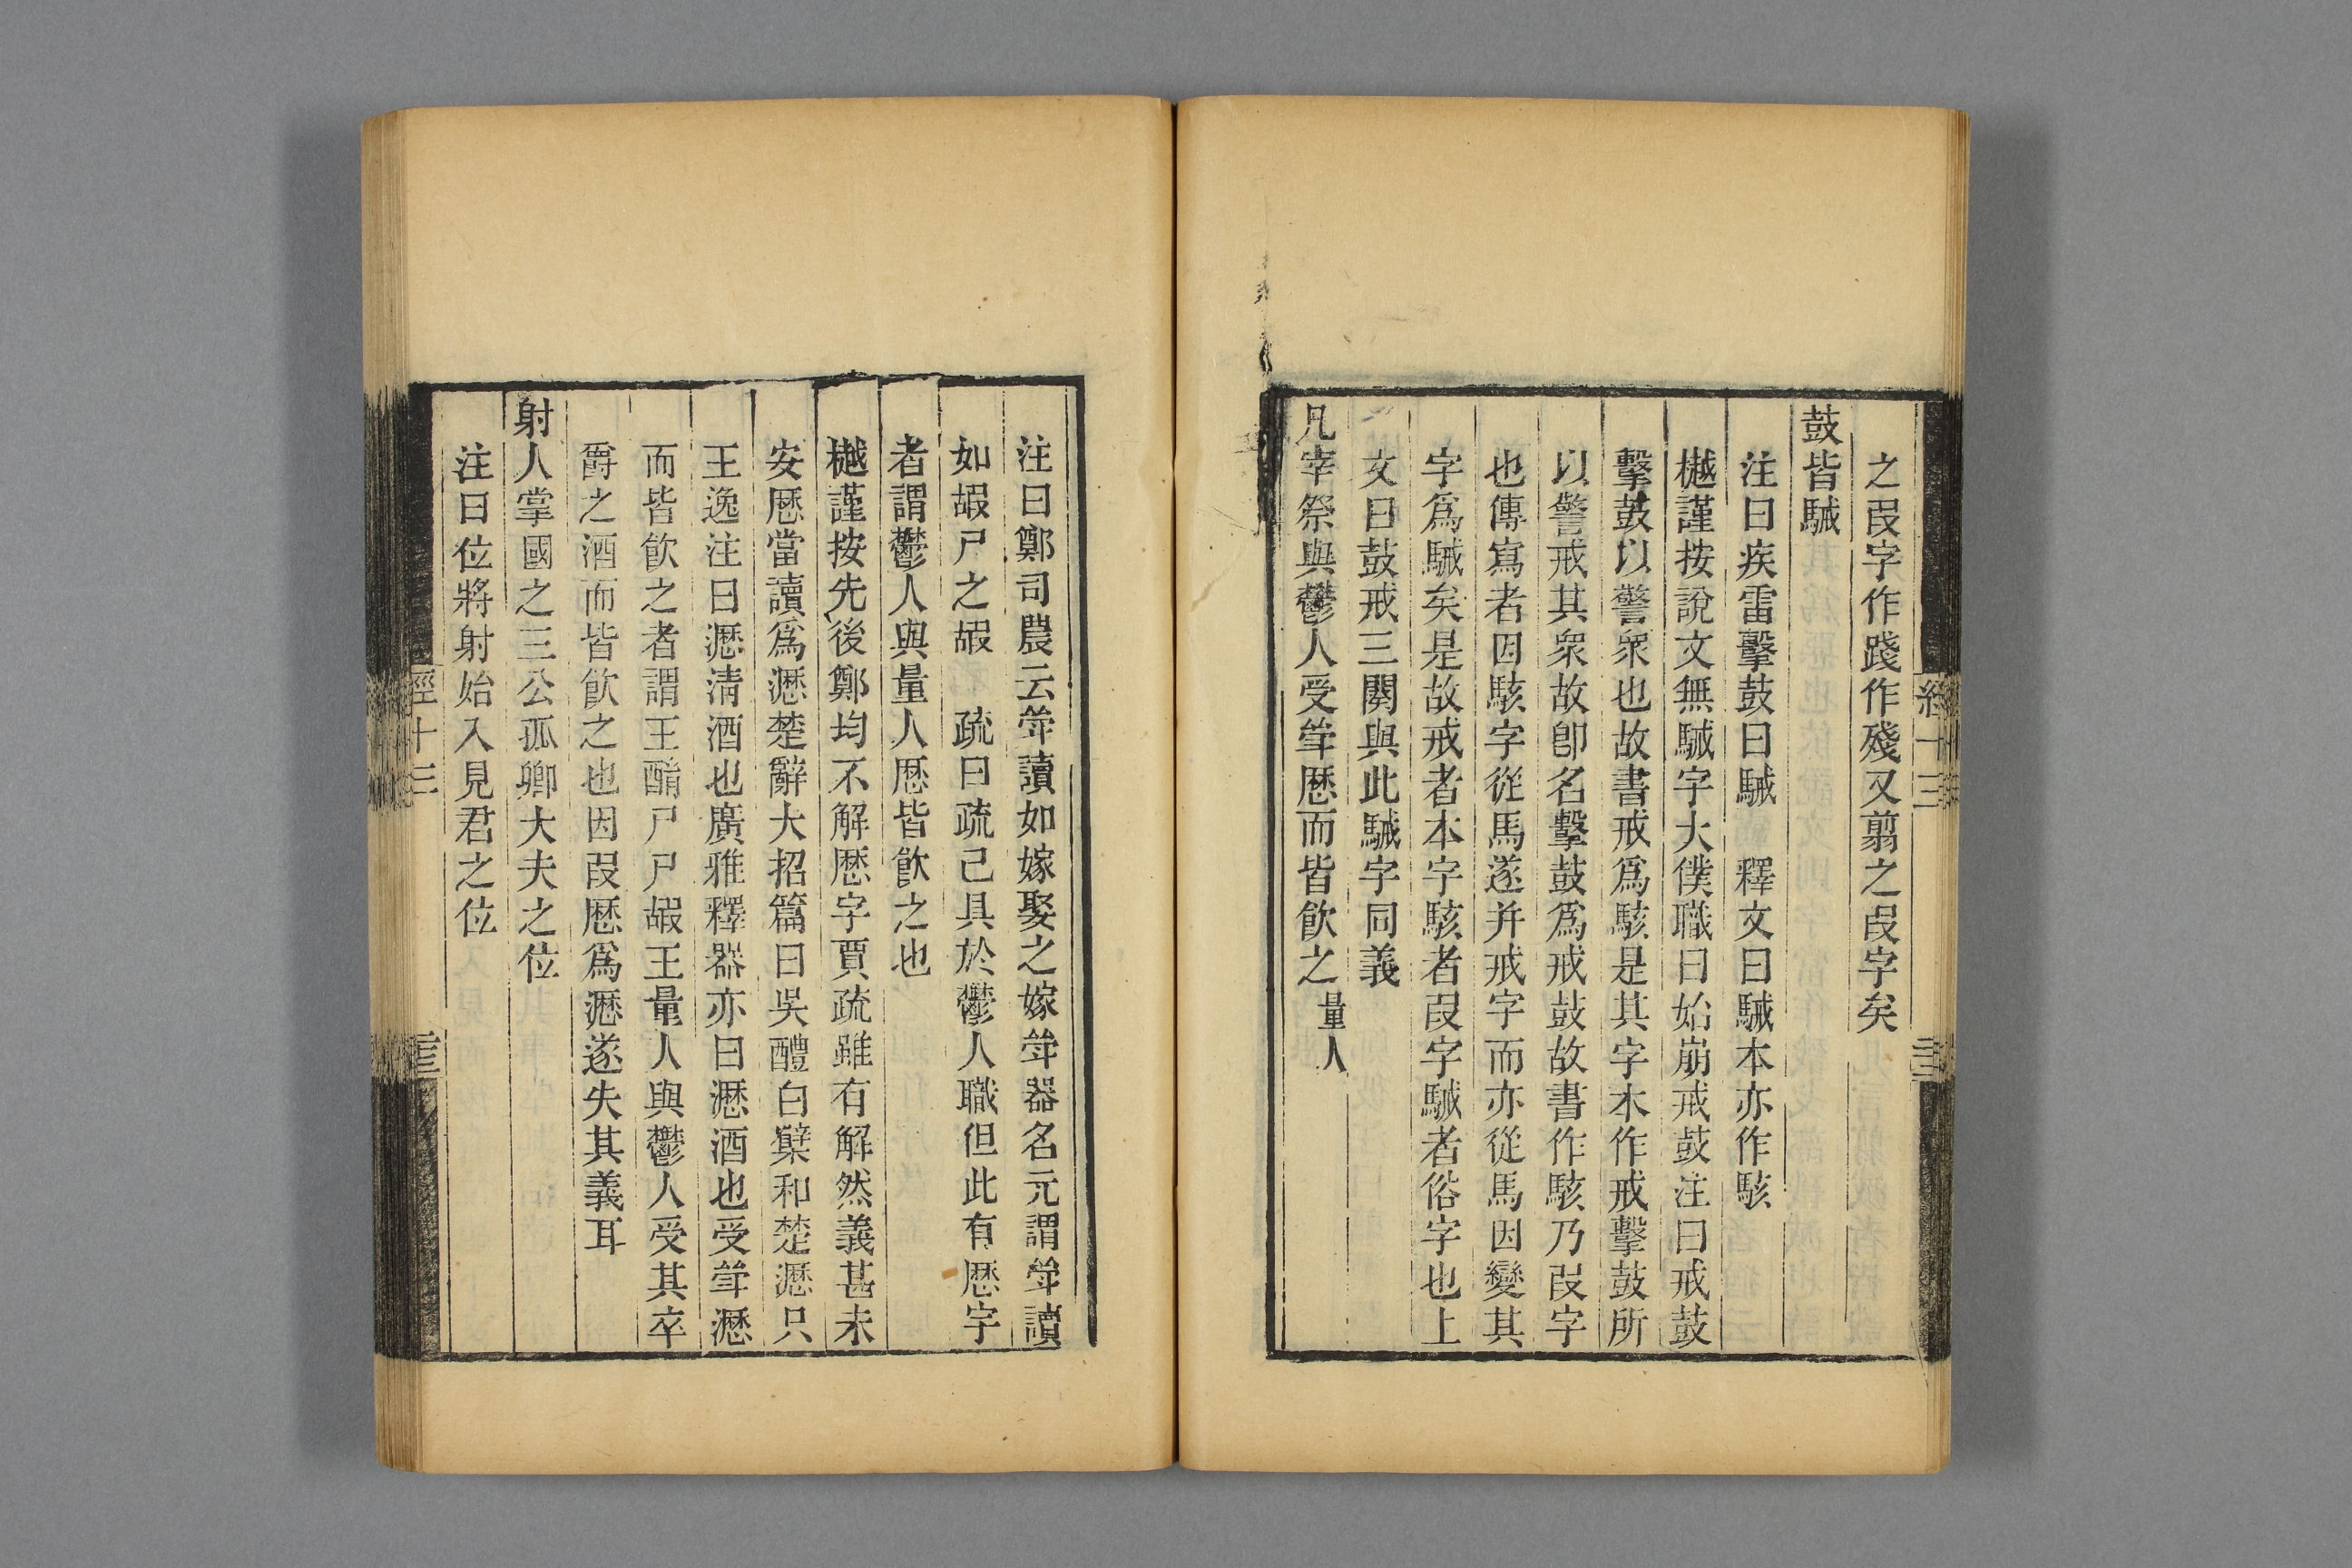 之叚字作踐作殘又翦之叚字矣
鼓皆駴
注曰疾雷擊鼓曰駴　釋文曰駴本亦作駭
樾謹按說文無駴字大僕職曰始崩戒鼓注曰戒鼓
擊鼓以警衆也故書戒爲駭是其字本作戒擊鼓所
以警戒其衆故卽名擊鼓爲戒鼓故書作駭乃叚字
也傳寫者因駭字從馬遂并戒字而亦從馬因變其
字爲駴矣是故戒者本字駭者叚字駴者俗字也上
文曰鼓戒三闋與此駴字同義
凡宰祭與鬱人受斝歷而皆飮之量人
注曰鄭司農云斝讀如嫁娶之嫁斝器名元謂斝讀
如嘏尸之嘏　疏曰疏己具於鬱人職但此有歷字
者謂鬱人與量人歷皆飮之也
樾謹按先後鄭均不解歷字賈疏雖有解然義甚未
安歷當讀爲瀝楚辭大招篇曰吳醴白糱和楚瀝只
王逸注曰瀝淸酒也廣雅釋器亦曰瀝酒也受斝瀝
而皆飮之者謂王酳尸尸嘏王量人與鬱人受其卒
爵之酒而皆飮之也因叚歷爲瀝遂失其義耳
射人掌國之三公孤卿大夫之位
注曰位將射始入見君之位
經十三